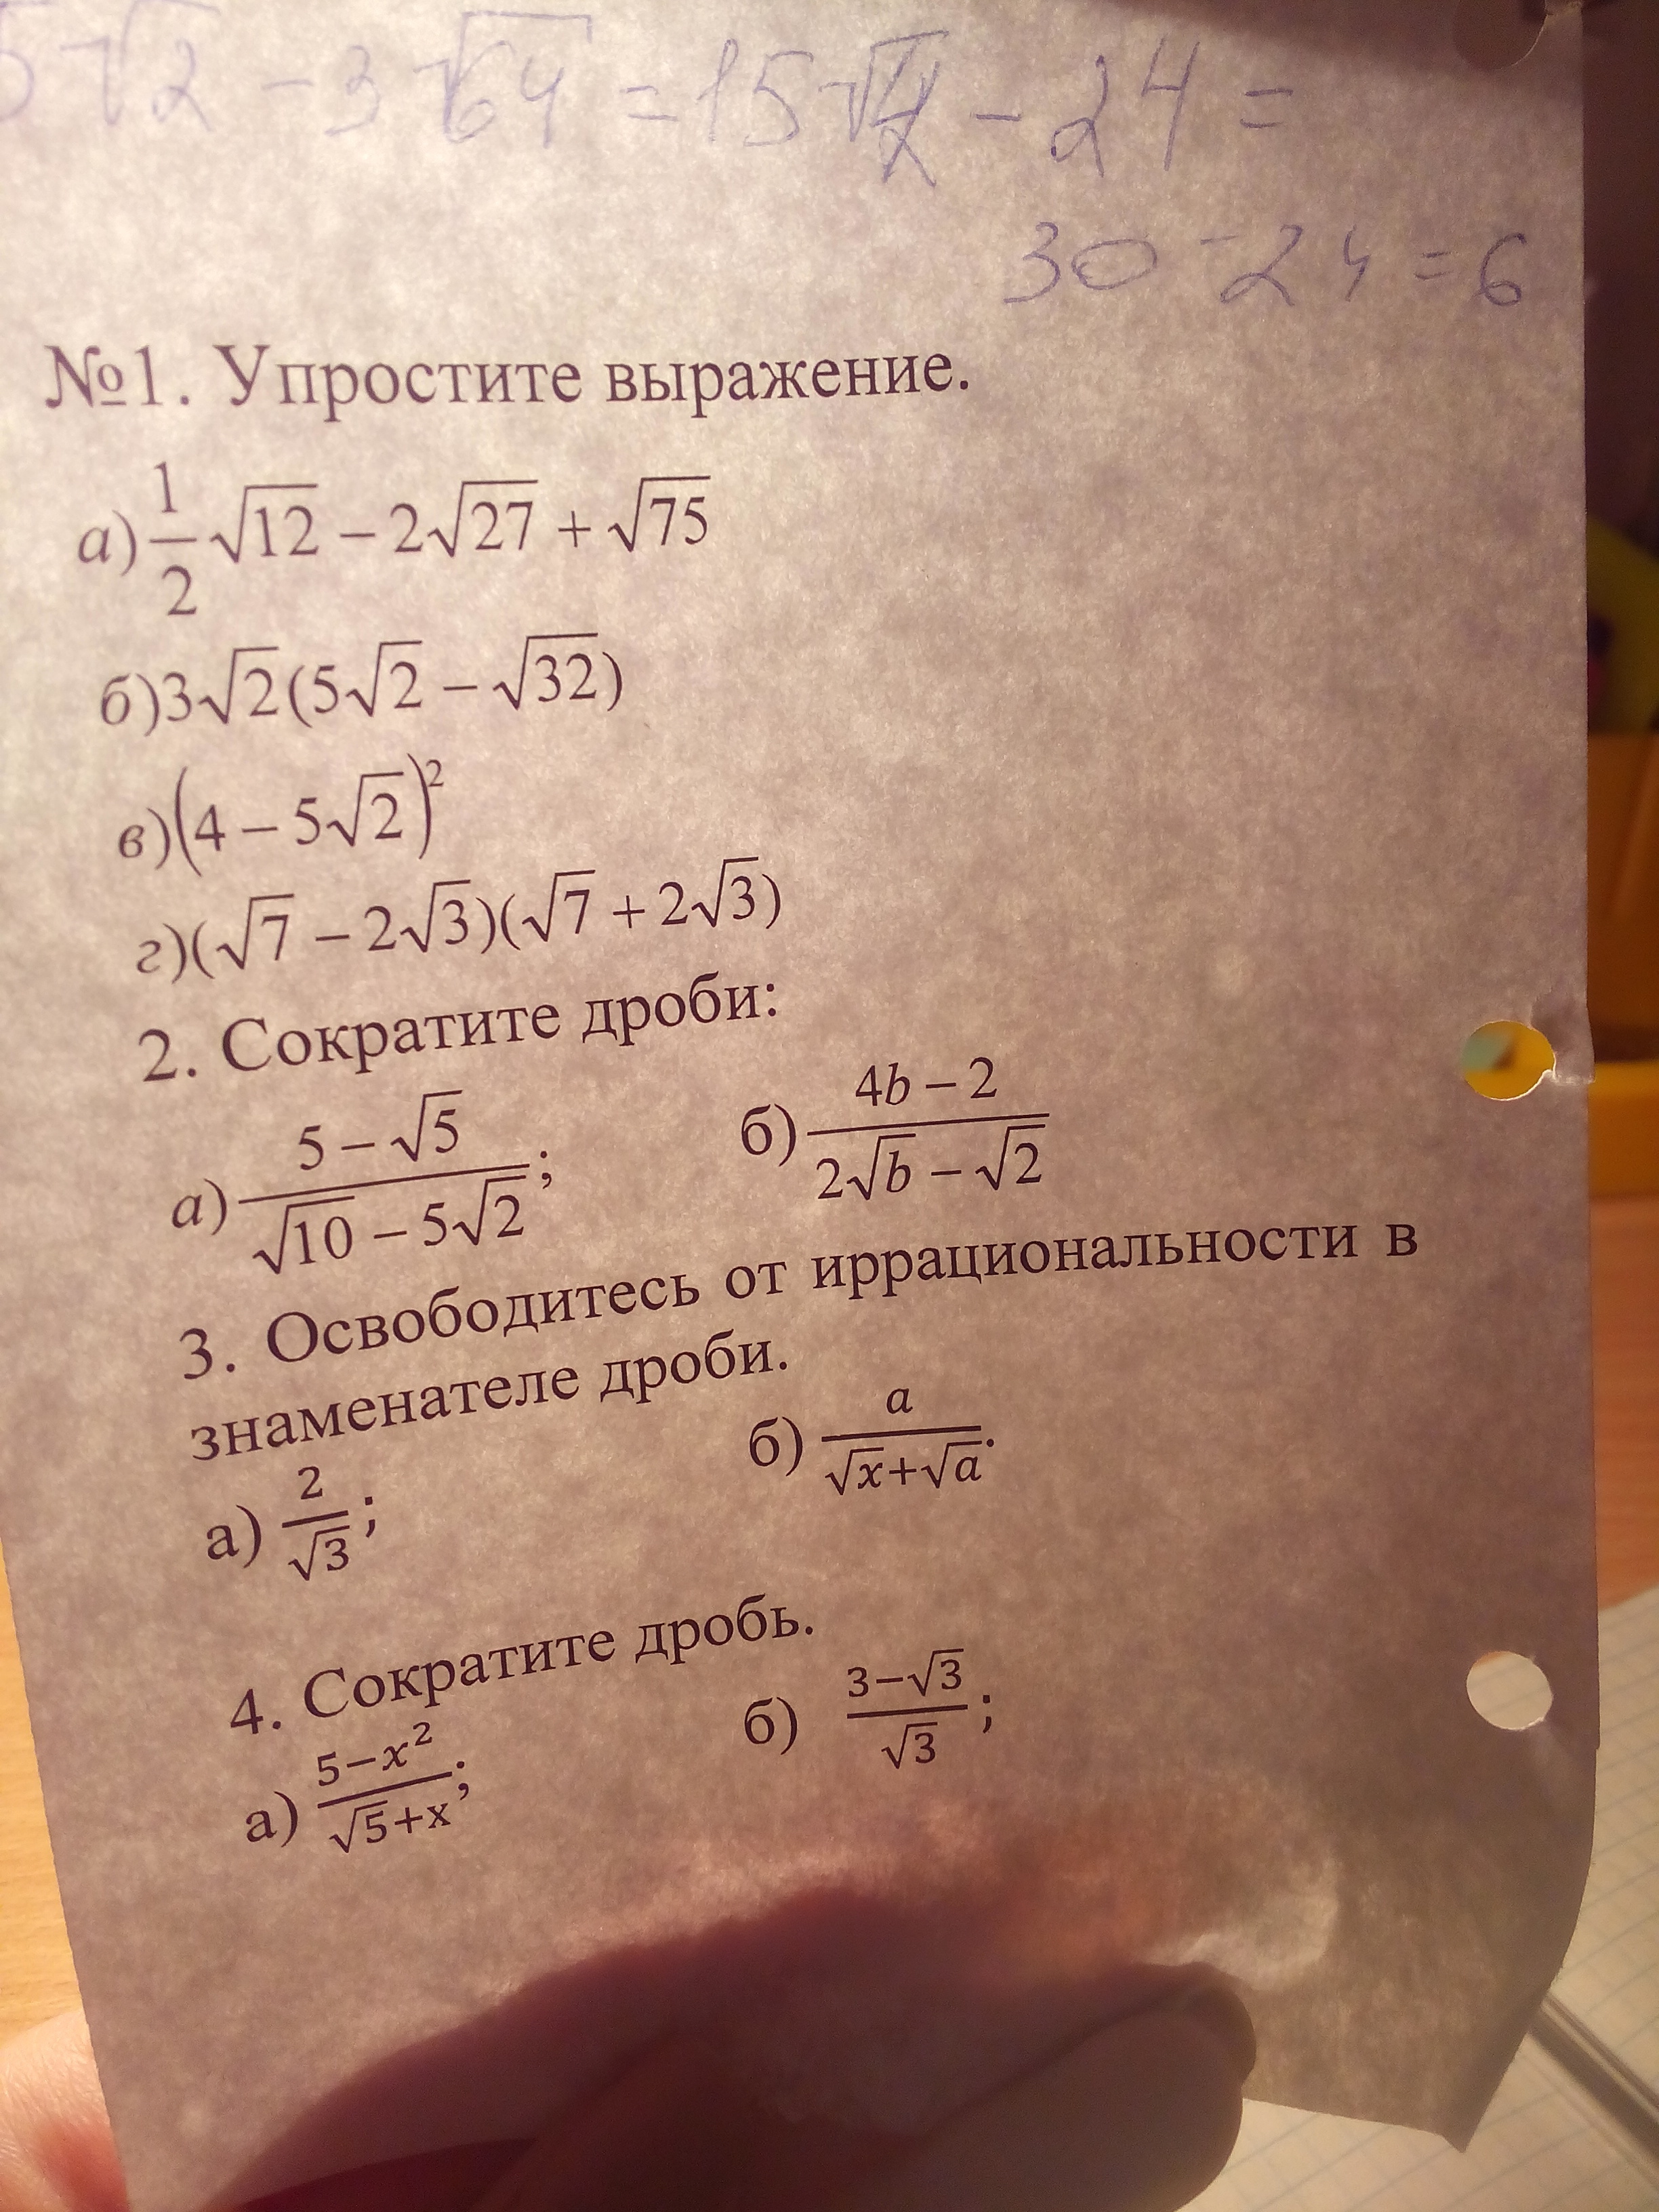 5√2 − 3√64 = 15√4 − 24 =
30 − 24 = 6
№1. Упростите выражение.
а) 1/2 √12 − 2√27 + √75
б) 3√2(5√2 − √32)
в) (4 − 5√2)²
г) (√7 − 2√3)(√7 + 2√3)
2. Сократите дроби:
а) (5 − √5)/(√10 − 5√2); б) (4b − 2)/(2√b − √2)
3. Освободитесь от иррациональности в
знаменателе дроби.
а) 2/√3; б) a/(√x+√a).
4. Сократите дробь.
а) (5−x²)/(√5+x); б) (3−√3)/√3;